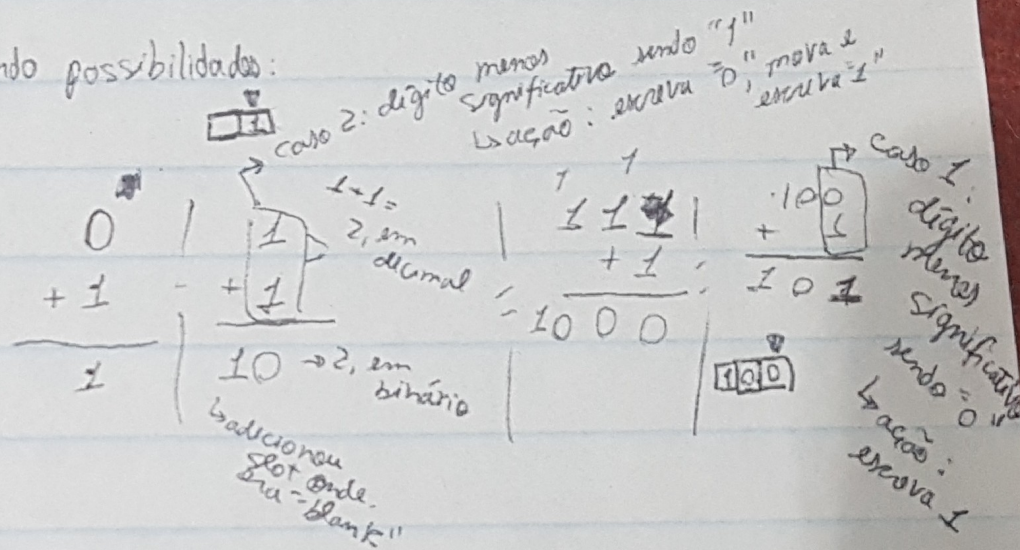 ndo possibilidades:
1
caso 2: dígito menos
significativo sendo "1"
↳ ação: escreva "0", mova e
escreva "1"
0
+ 1
1
1
+ 1
10 → 2, em
binário
1+1=
2, em
decimal
↳ adicionou
slot onde
era "blank"
1 1
1 1 1
+ 1
1 0 0 0
100
+ 1
1 0 1
1 0 0
caso 1:
dígito
menos
significativo
sendo "0"
↳ ação:
escreva 1